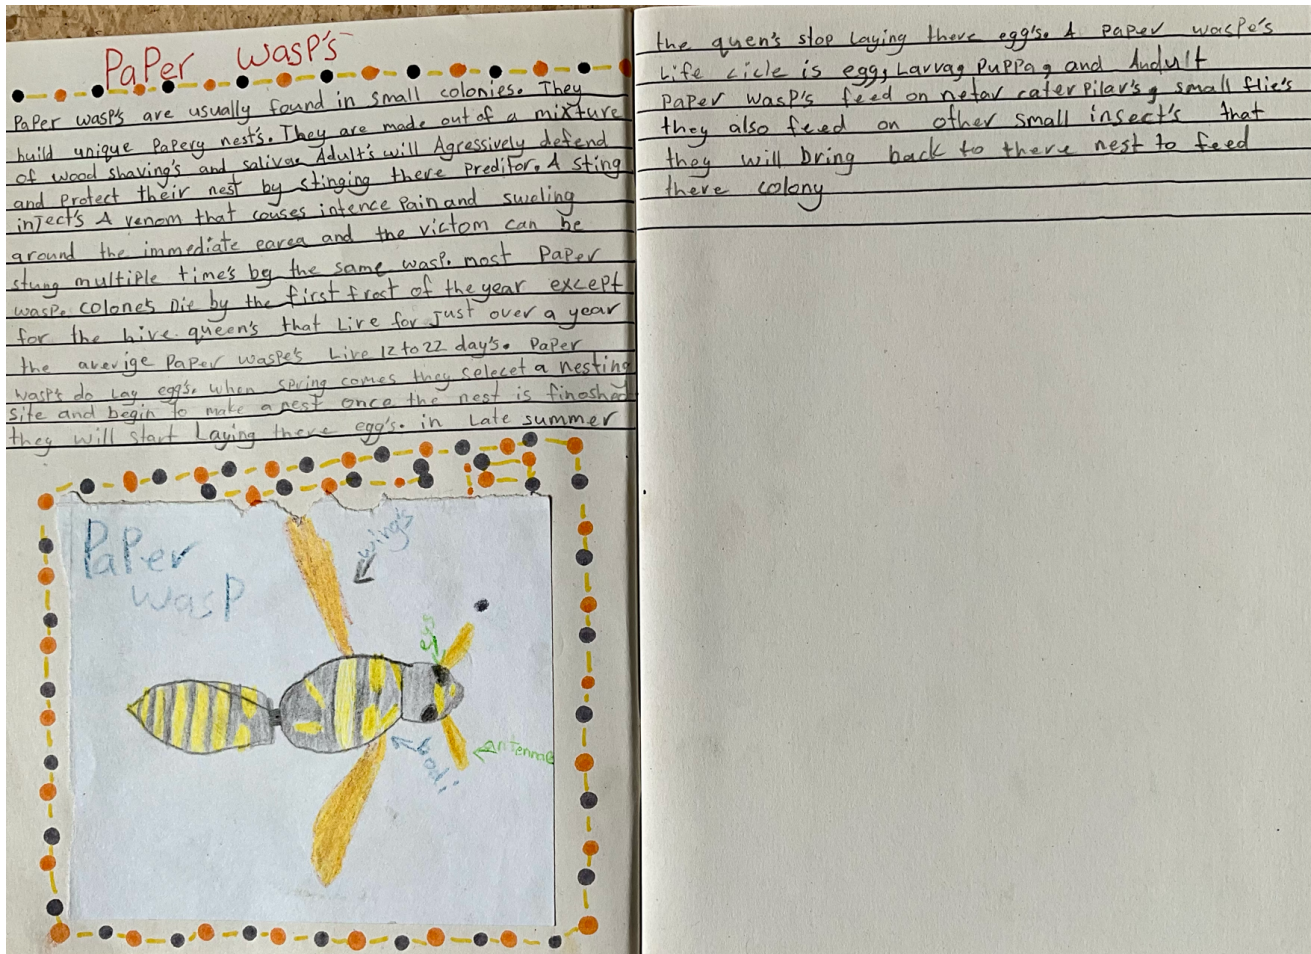 PaPer wasp's
PaPer wasp's are usually found in small colonies. They
build unique Papery nest's. They are made out of a mixture
of wood shaving's and salivae Adult's will Agressively defend
and Protect their nest by stinging there Preditor. A sting
inJect's A venom that couses intence Pain and sweling
around the immediate earea and the victom can be
stung multiple time's by the same wasp. most PaPer
wasp. colone's Die by the first frost of the year except
for the hive queen's that Live for just over a year
the averige PaPer waspe's Live 12 to 22 day's. PaPer
wasp's do lay egg's. when spring comes they selecet a nesting
site and begin to make a nest once the nest is finoshed
they will start Laying there egg's. in Late summer
PaPer
wasP
wing's
eys
antennae
bodi
the quen's stop laying there egg's. A paper waspe's
Life cicle is egg, Larvag PuPPa, and Andult
PaPer wasp's feed on netav caterpilar's, small flie's
they also feed on other small insect's that
they will bring back to there nest to feed
there colony